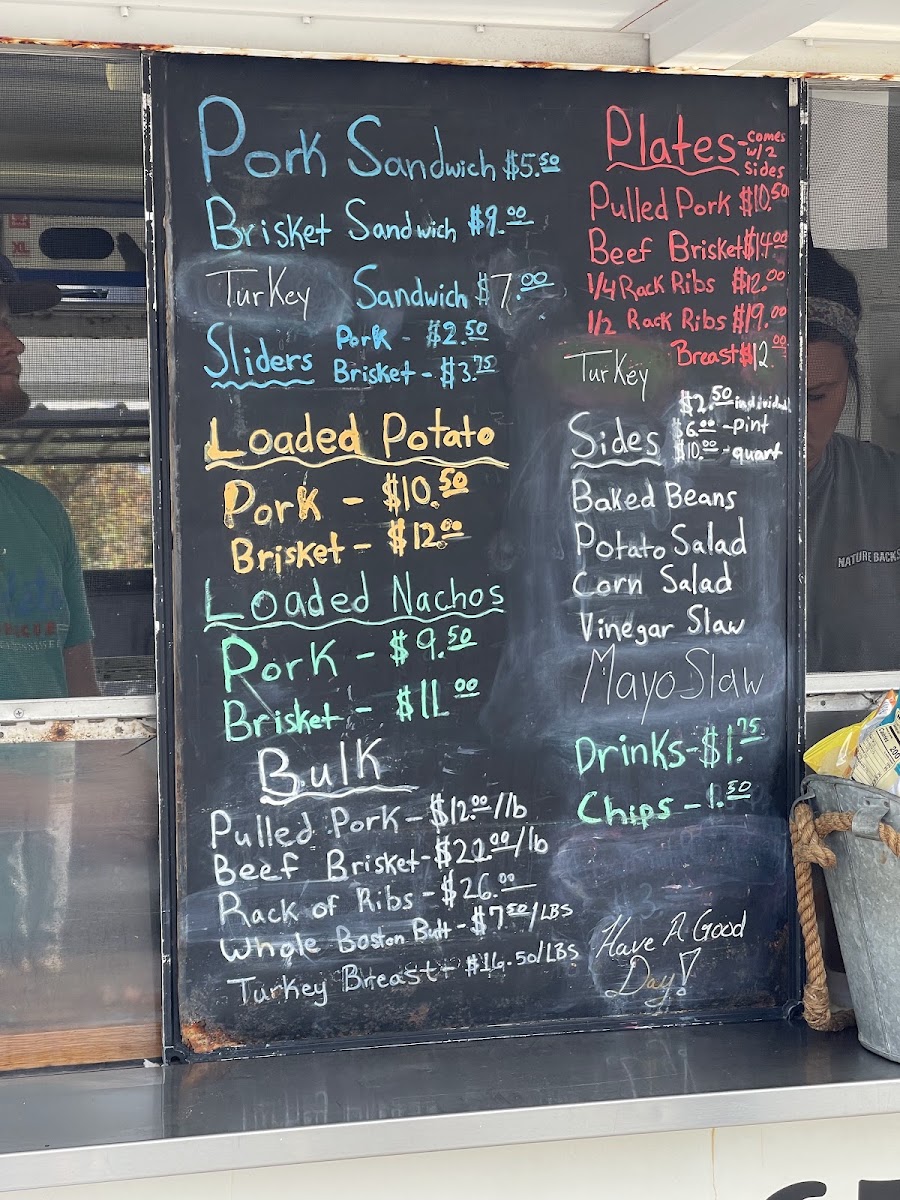 Pork Sandwich $5.50
Brisket Sandwich $9.00
Turkey Sandwich $7.00
Sliders Pork - $2.50
Brisket - $3.75
Loaded Potato
Pork - $10.50
Brisket - $12.00
Loaded Nachos
Pork - $9.50
Brisket - $11.00
Bulk
Pulled Pork - $12.00/lb
Beef Brisket - $22.00/lb
Rack of Ribs - $26.00
Whole Boston Butt - $7.50/LBS
Turkey Breast - $16.50/LBS
Plates - comes
w/2
sides
Pulled Pork $10.50
Beef Brisket $14.00
1/4 Rack Ribs $12.00
1/2 Rack Ribs $19.00
Turkey Breast $12.00
Sides $2.50 individual
$6.00 - pint
$10.00 - quart
Baked Beans
Potato Salad
Corn Salad
Vinegar Slaw
Mayo Slaw
Drinks - $1.75
Chips - 1.50
Have A Good
Day!
XL
NATURE BACKS